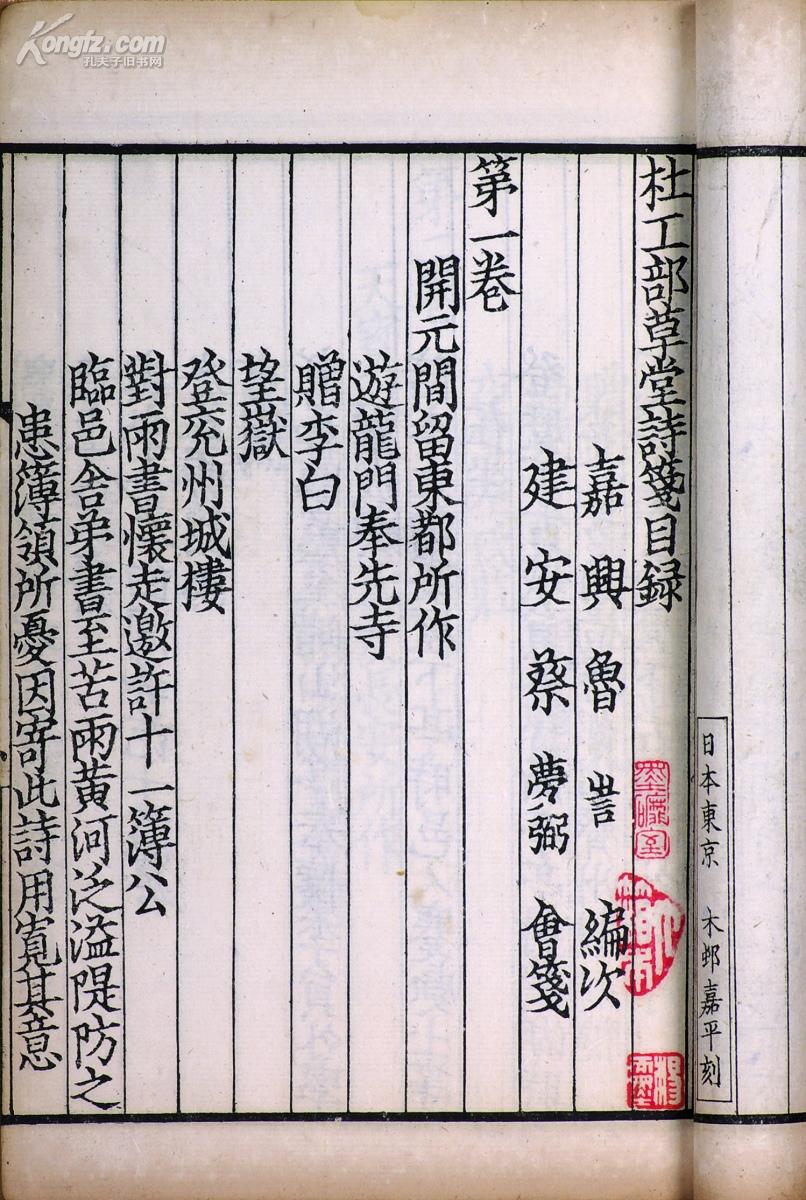 Kongfz.com
孔夫子旧书网
日本東京 木邨嘉平刻
杜工部草堂詩箋目録
嘉興魯訔編次
建安蔡夢弼會箋
第一卷
開元間留東都所作
遊龍門奉先寺
贈李白
望嶽
登兖州城樓
對雨書懷走邀許十一簿公
臨邑舍弟書至苦雨黃河泛溢隄防之
患簿領所憂因寄此詩用寬其意